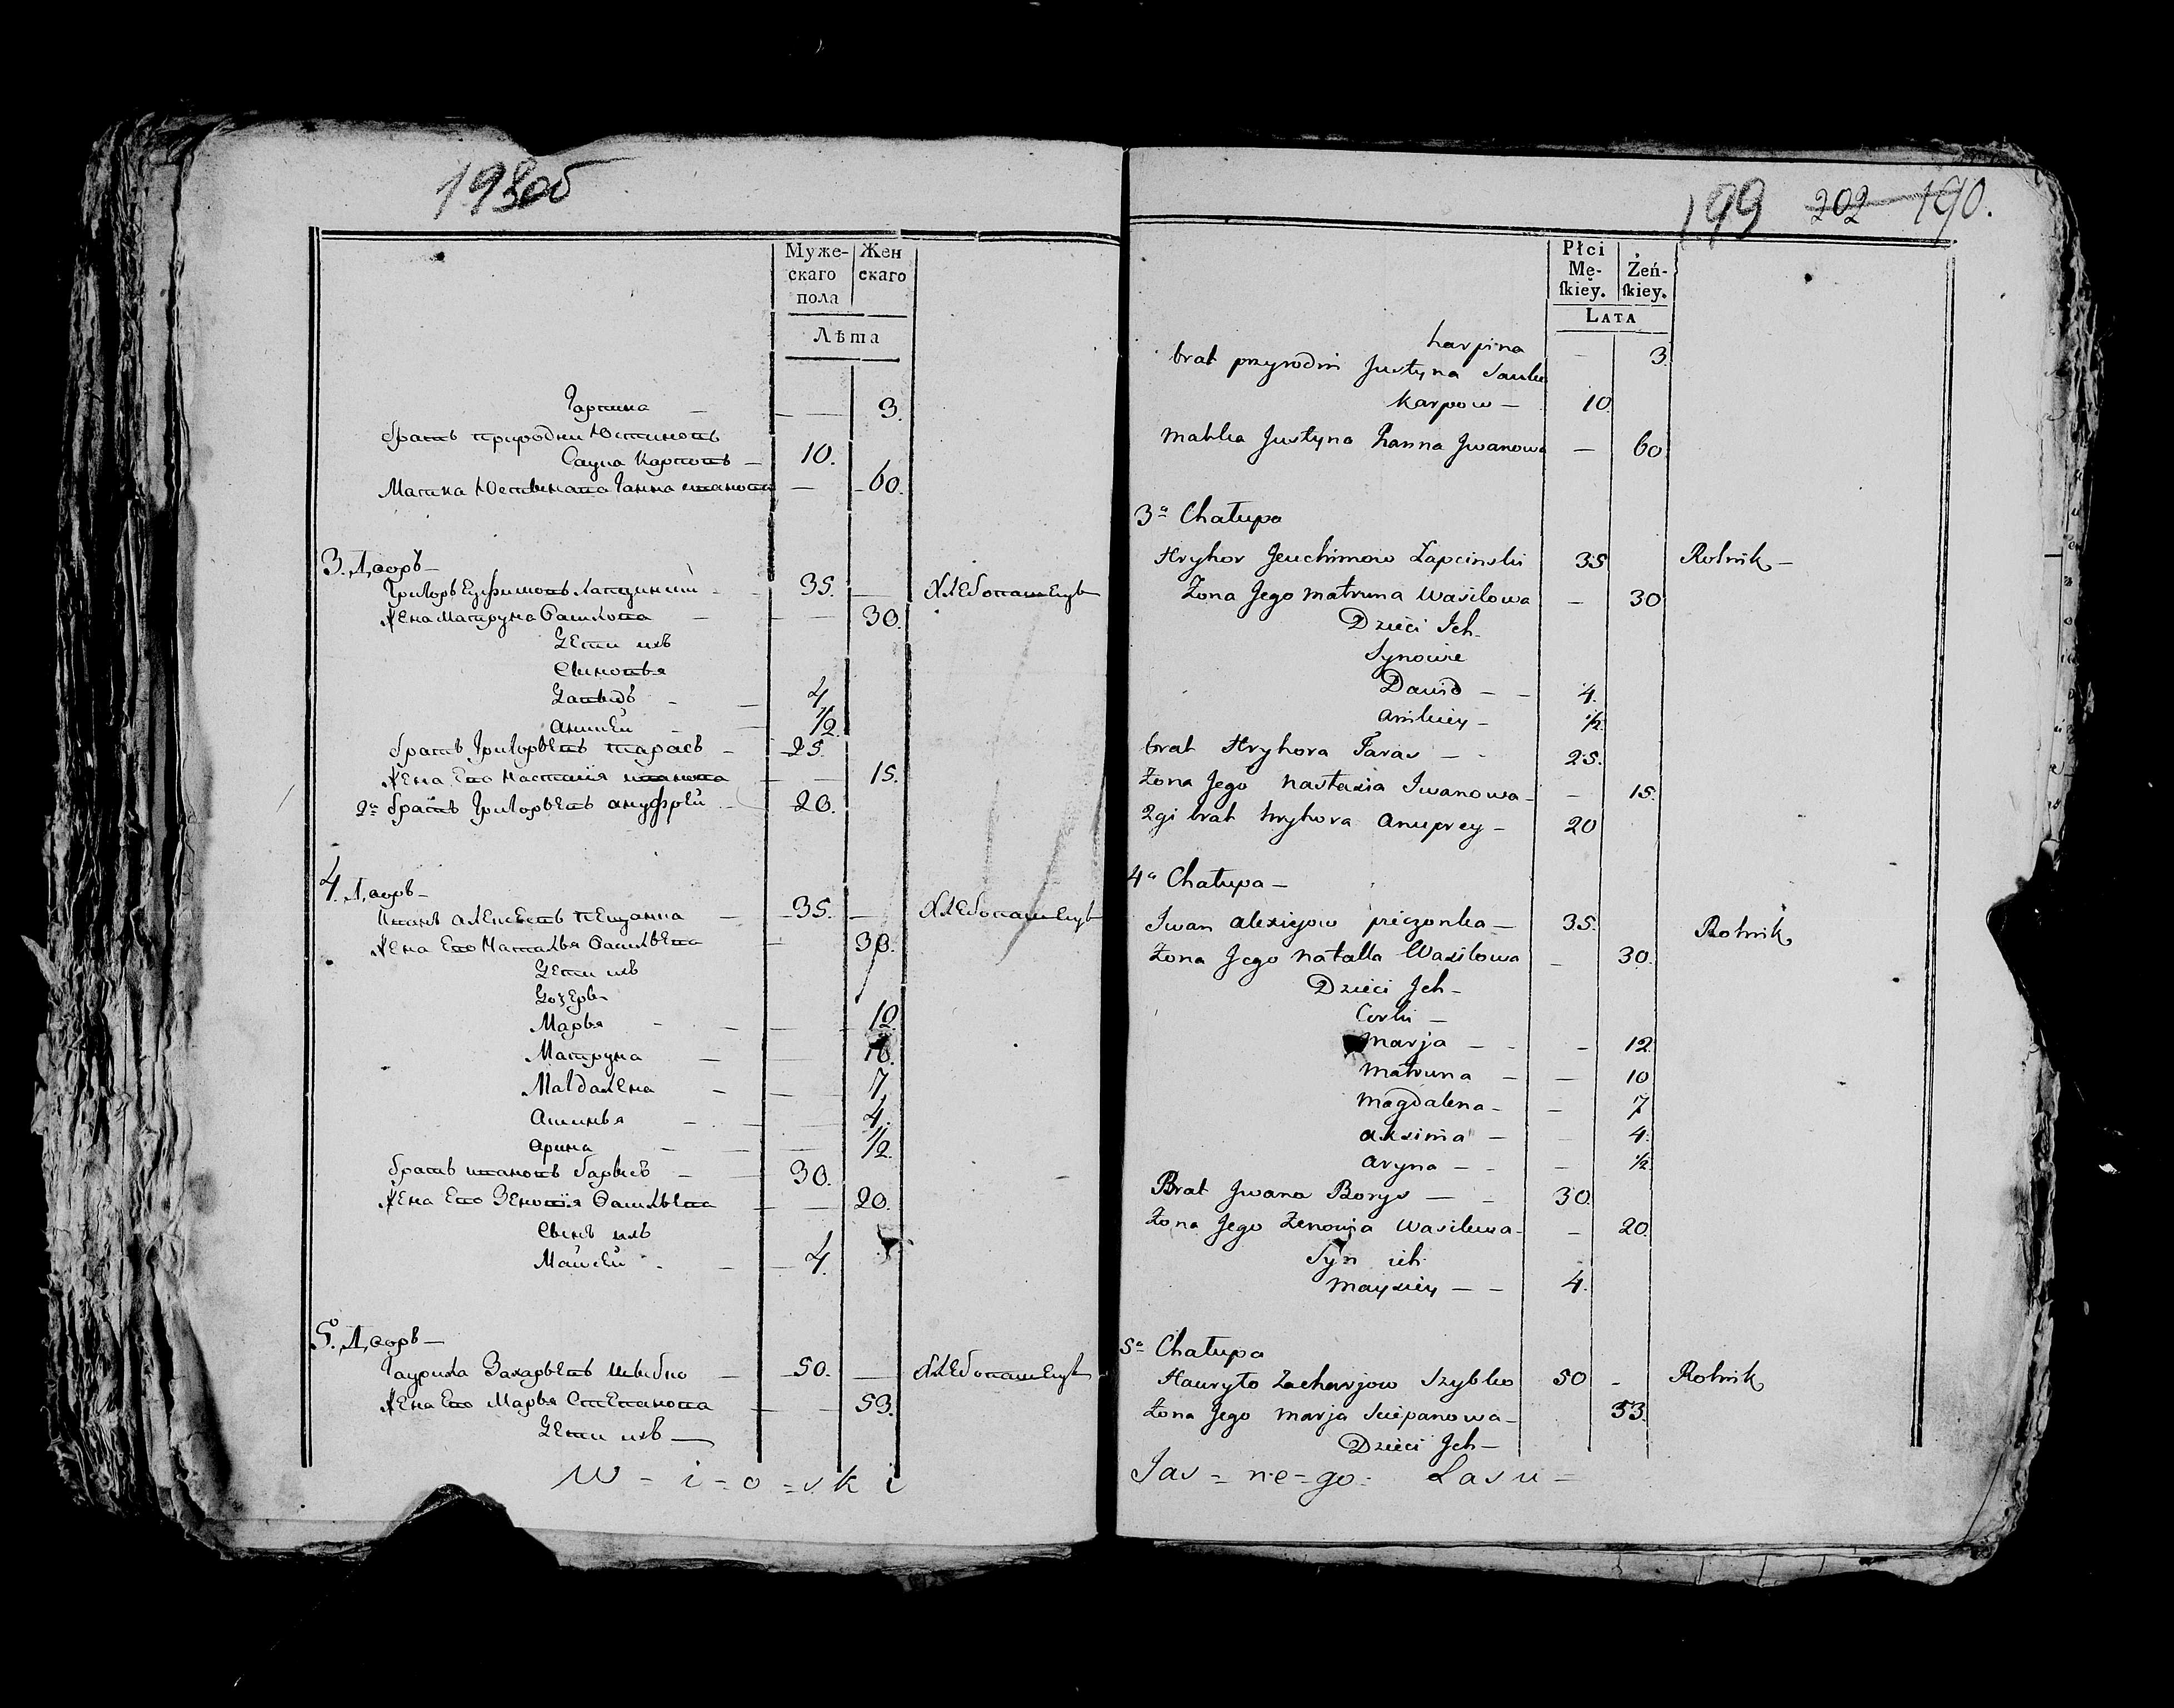 193об
Муже- Жен
скаго скаго
пола
Лѣта
Гарпина — — — 3.
братъ природни Юстиновъ
Саука Карповъ — 10.
Матка Юстинава Ганна ивановa — 60.
3. Дворъ —
Григоръ Еуфимовъ Лапцинскій 35. — Хлебопашецъ
Жена Матруна Василова — — — 30.
Дети ихъ
Сыновья
Давыдъ - — 4
Аникей — 1/2.
братъ Григорьевъ Тарасъ — 25.
Жена Его Настасія иванова — — 15.
2й братъ Григорьевъ ануфрей — 20.
4. Дворъ —
Иванъ алексеевъ Пецонка — 35. — Хлебопашецъ
Жена Его Наталья Васильева — 30.
Дети ихъ
Дочери
Марья - — — 12.
Матруна — — 10.
Магдалена — — 7
Аксинья - — — 4.
Арина — — — 1/2.
братъ ивановъ барысъ — 30.
Жена Его Зеновія Васильева — — 20.
Сынъ ихъ
Майсей - — — 4.
5. Дворъ —
Гаурила Захарьевъ Шыбко — 50. — Хлебопашецъ
Жена Его Марья Степанова — — 53.
Дети ихъ —
W = i = o = s k i
199 202 190.
Płci
Mę- Żeń-
ſkiey. ſkiey.
LATA
harpina — 3.
brat przyrodni Justyna Sauka
Karpow — 10.
matka Justyna Hanna Jwanowa — 60
3a Chałupa
Hryhor Jeuchimow Łapcinski 35 Rolnik —
Żona Jego matruna Wasilowa — 30
Dzieci Ich -
Synowie
Dawid - — 4.
anikiey - 1/2.
brat Hryhora Taras - - 25.
żona Jego nastazia Iwanowa - — 15.
2gi brat hryhora anuprey — 20
4a Chałupa —
Iwan alexiejow pieczonka — 35. Rolnik
żona Jego natalla Wasilowa — 30.
Dzieci Jch —
Corki —
marja — - - 12.
matruna — — 10
magdalena - — 7
axsinia — — 4.
aryna — - — 1/2
Brat Jwana Borys — - 30.
żona Jego Zenowia Wasilewa - — 20.
Syn ich
maysiey — - 4.
5a Chałupa
Hauryło Zacharjow Szybko 50 - Rolnik
żona Jego marja Sciepanowa - 53.
Dzieci Jch —
Jas = ne = go = Lasu =